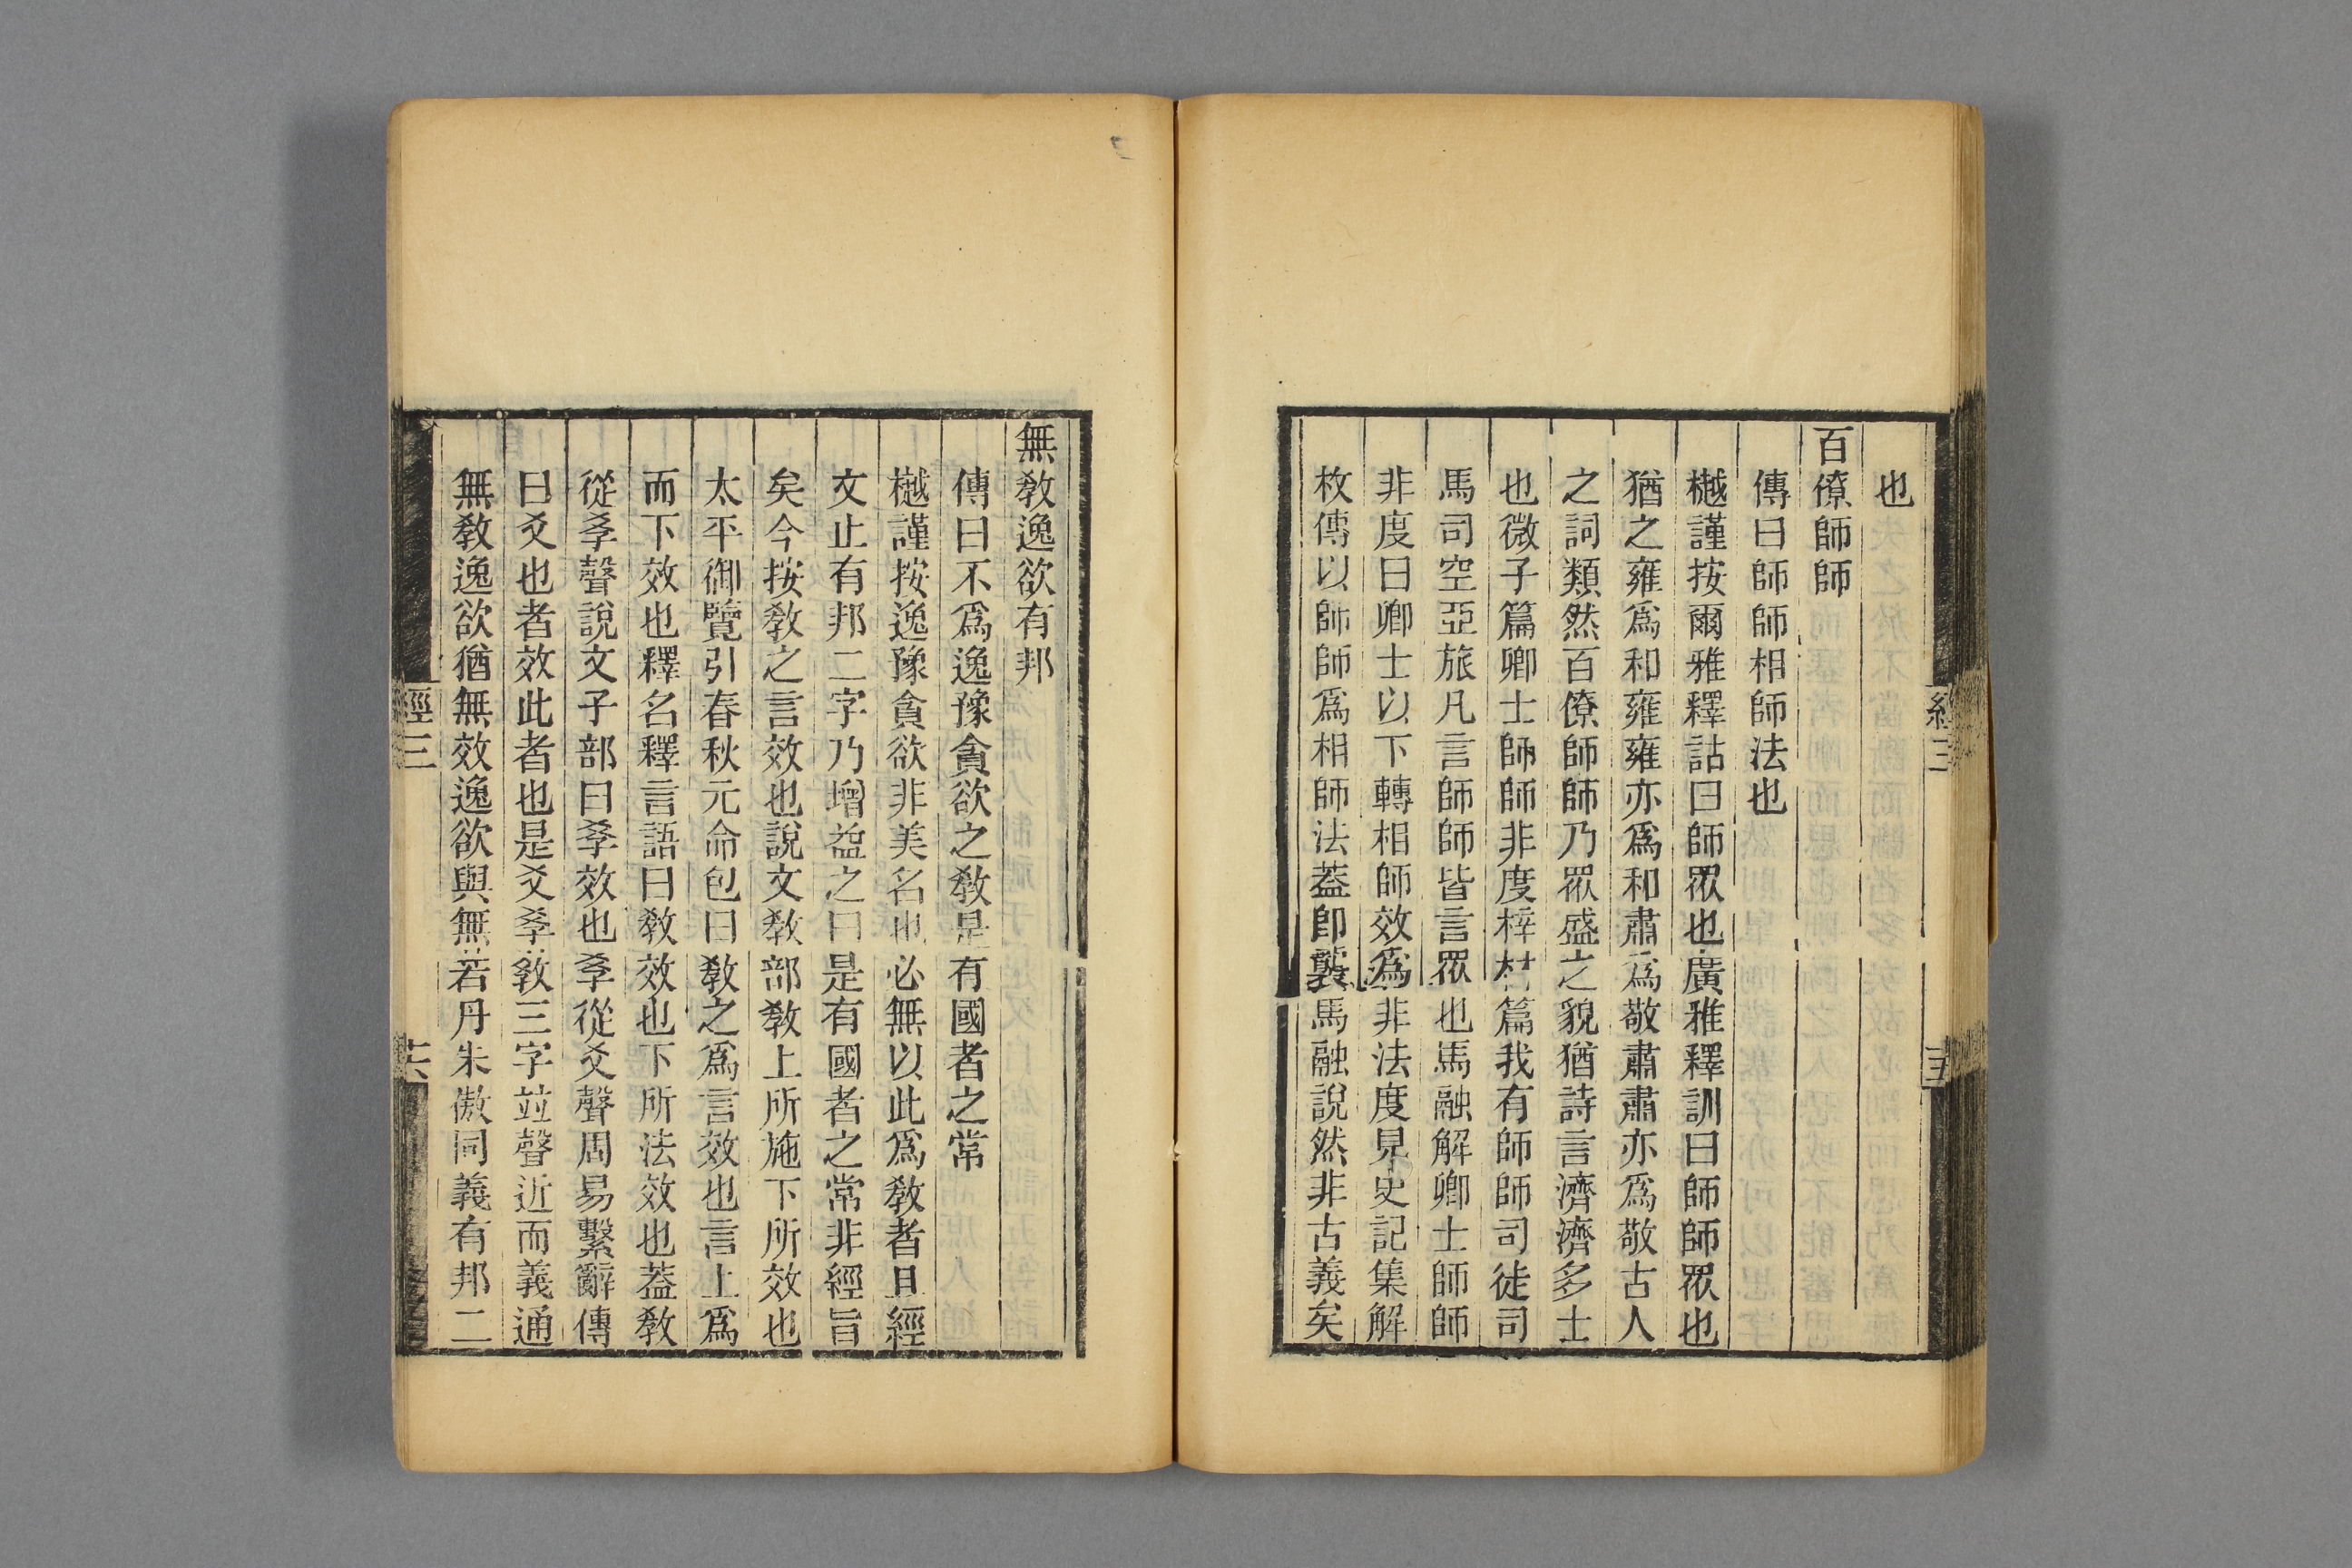 也
百僚師師
傳曰師師相師法也
樾謹按爾雅釋詁曰師眾也廣雅釋訓曰師師眾也
猶之雍爲和雍雍亦爲和肅爲敬肅肅亦爲敬古人
之詞類然百僚師師乃眾盛之貌猶詩言濟濟多士
也微子篇卿士師師非度梓材篇我有師師司徒司
馬司空亞旅凡言師師皆言眾也馬融解卿士師師
非度曰卿士以下轉相師效爲非法度見史記集解
枚傳以師師爲相師法蓋卽襲馬融說然非古義矣
無敎逸欲有邦
傳曰不爲逸豫貪欲之敎是有國者之常
樾謹按逸豫貪欲非美名也必無以此爲敎者且經
文止有邦二字乃增益之曰是有國者之常非經旨
矣今按敎之言效也說文敎部敎上所施下所效也
太平御覽引春秋元命包曰敎之爲言效也言上爲
而下效也釋名釋言語曰敎效也下所法效也蓋敎
從孝聲說文子部曰孝效也孝從爻聲周易繫辭傳
曰爻也者效此者也是爻孝敎三字竝聲近而義通
無敎逸欲猶無效逸欲與無若丹朱傲同義有邦二
經三
六